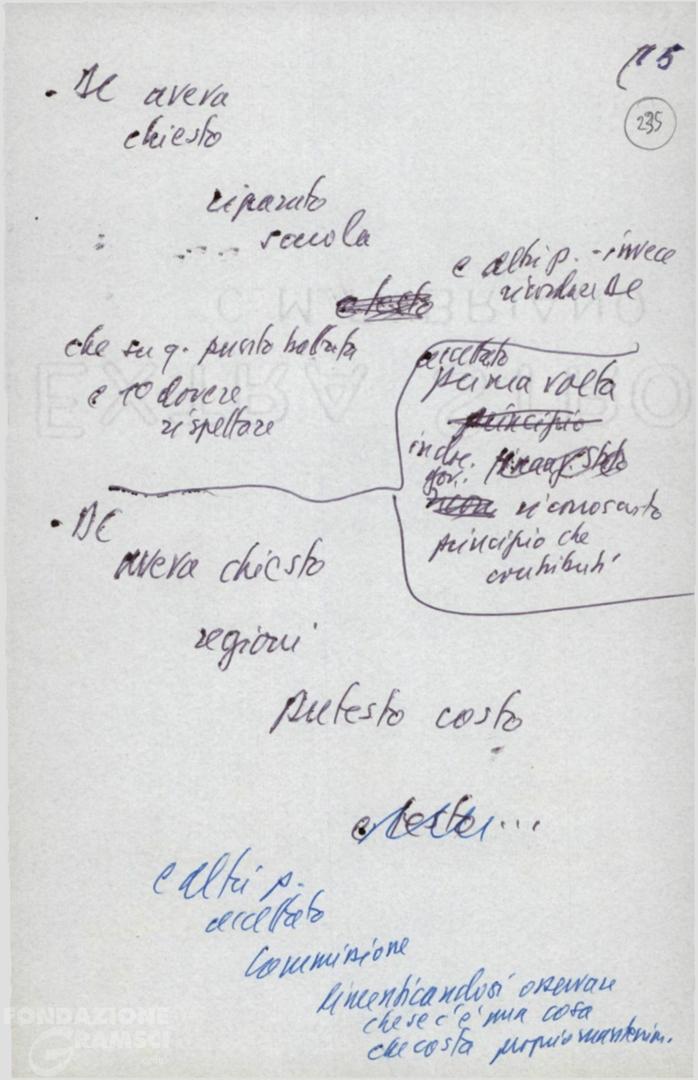 p 5
235
• DC aveva
chiesto
riparato
scuola
e testo
e altri p. - invece
ricordare DC
che su q. punto battuta
e 1° dovere
rispettare
accettato
prima volta
principio
indir.
gov.
riconosciuto
principio che
contributi
• DC
aveva chiesto
regioni
pretesto costo
e testo...
e altri p.
accettato
Commissione
dimenticandosi osservare
che se c'è una cosa
che costa proprio mantenim.
FONDAZIONE
GRAMSCI
EXTRA STRO
C. M. FABRIANO